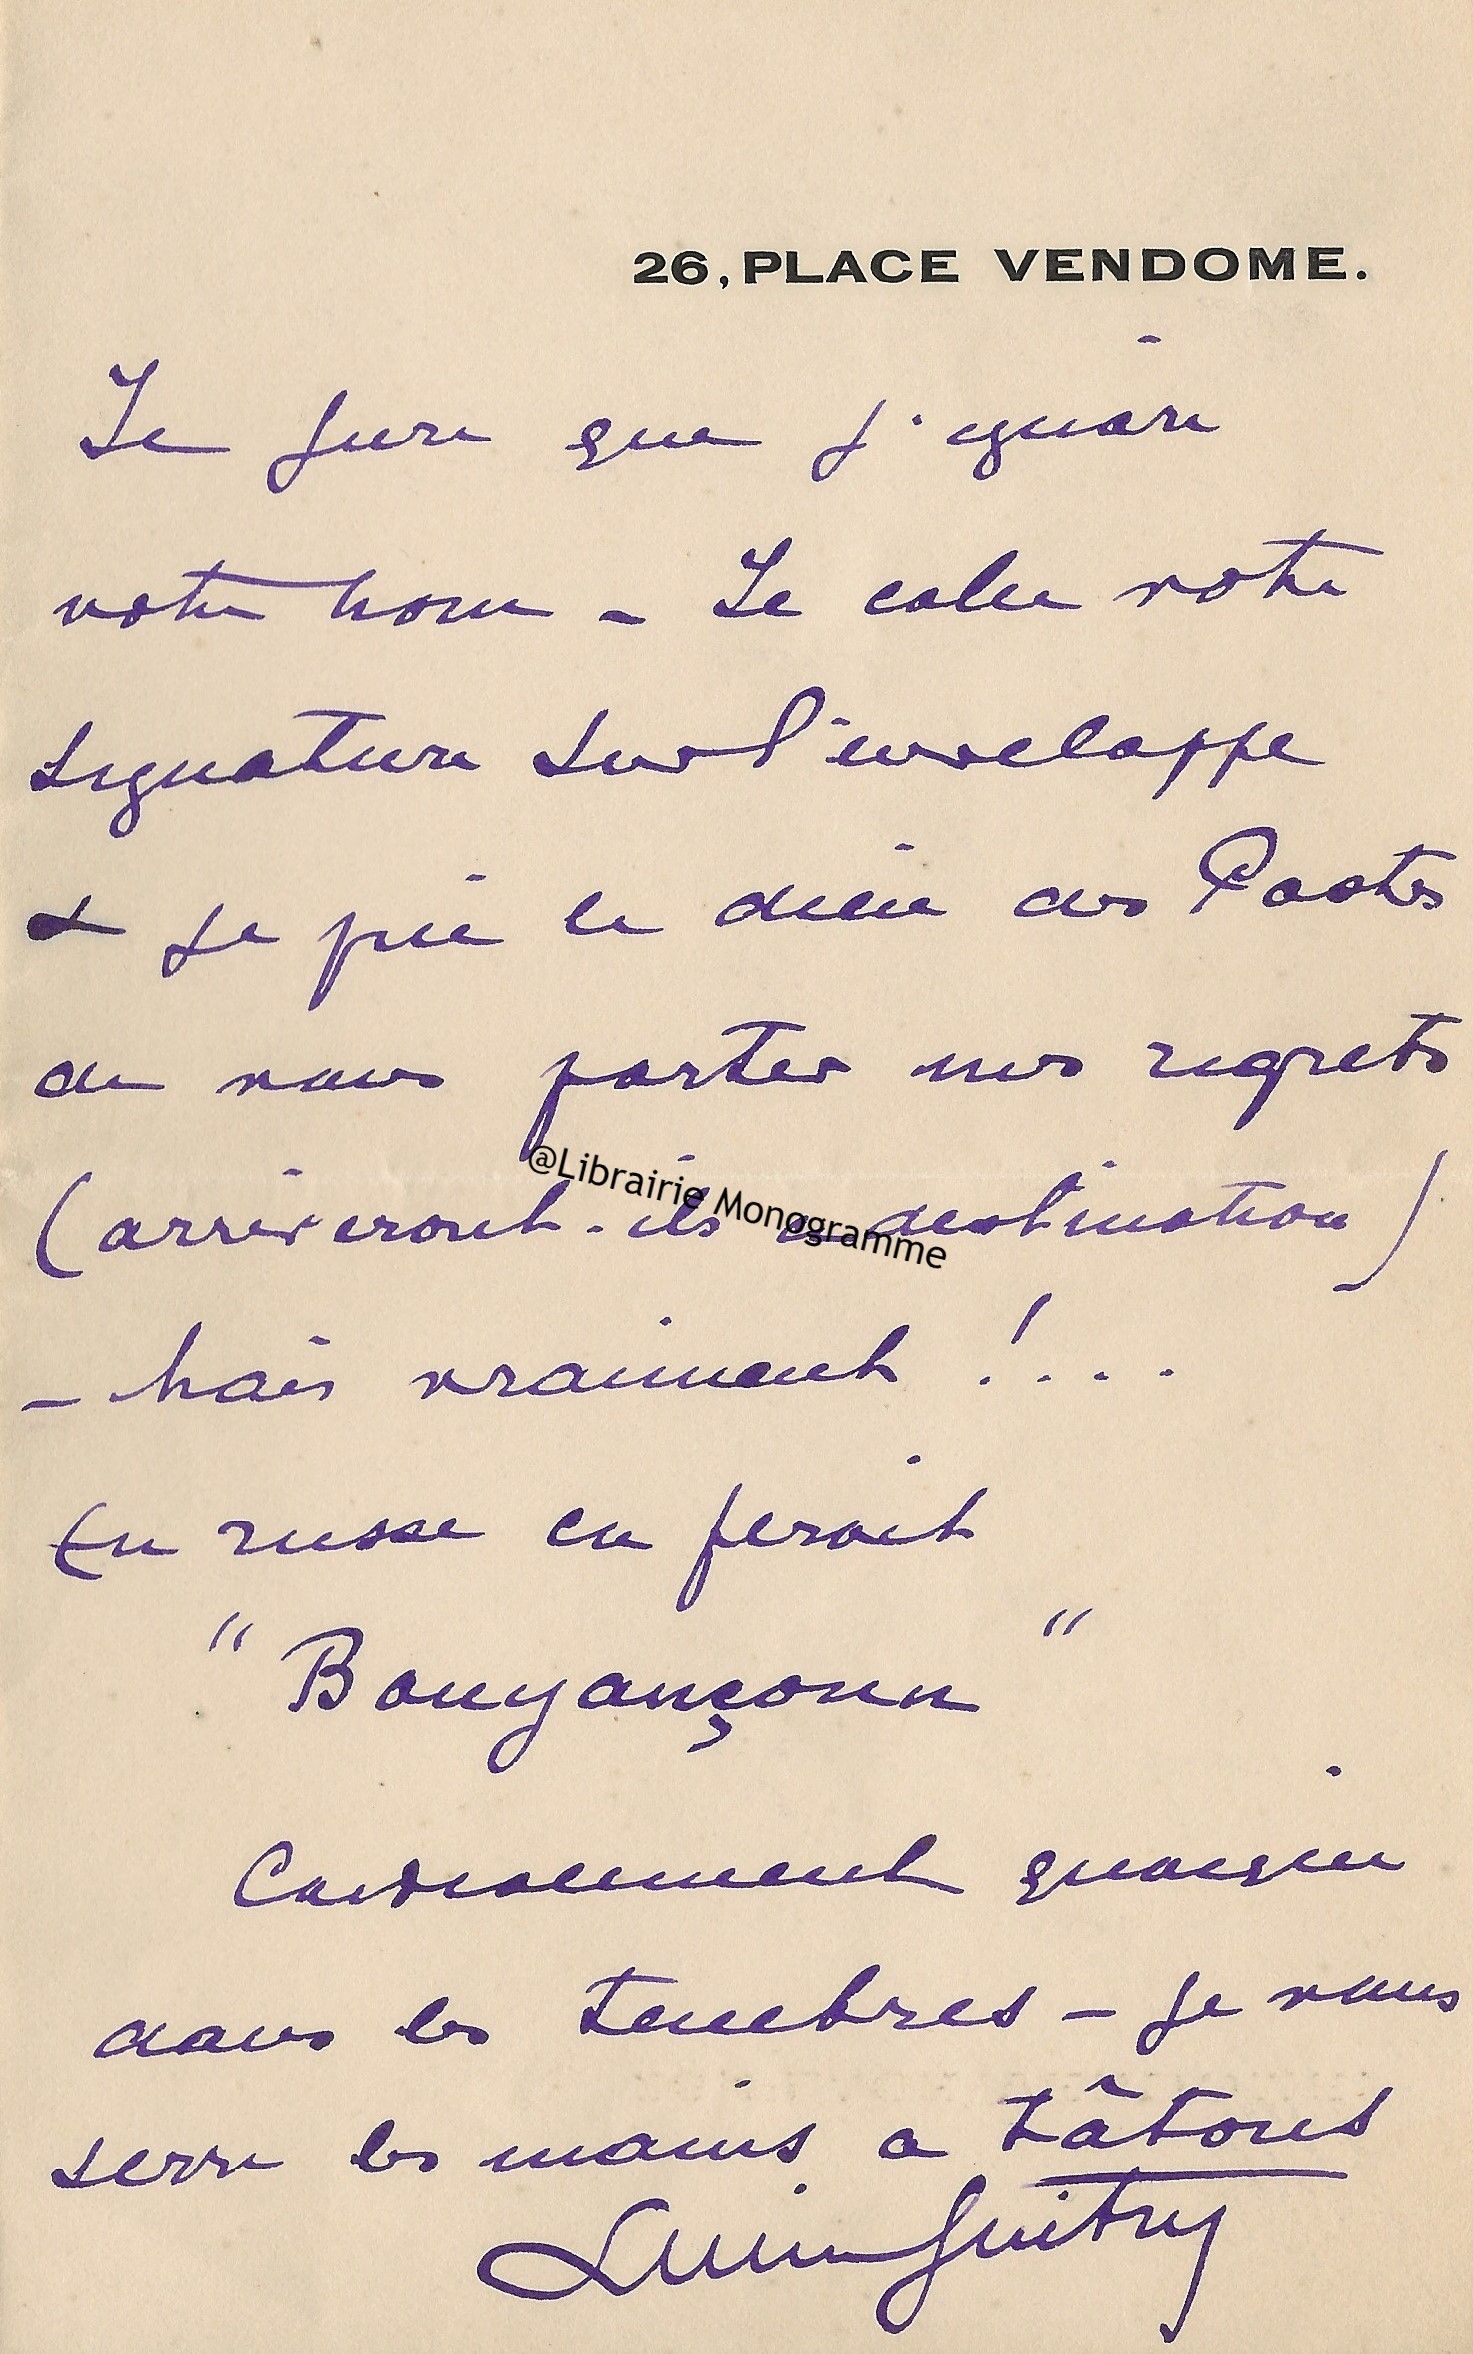 26, PLACE VENDOME.
Je jure que j'ignore
votre nom – Je calque votre
signature sur l'enveloppe
& je prie le dieu des Postes
de vous porter nos regrets
(arriveront-ils a destination)
@Librairie Monogramme
– Mais vraiment !...
En russe ça ferait
"Bouyançonn"
Cordialement quoique
dans les ténèbres – je vous
serre les mains a tâtons
Lucien Guitry